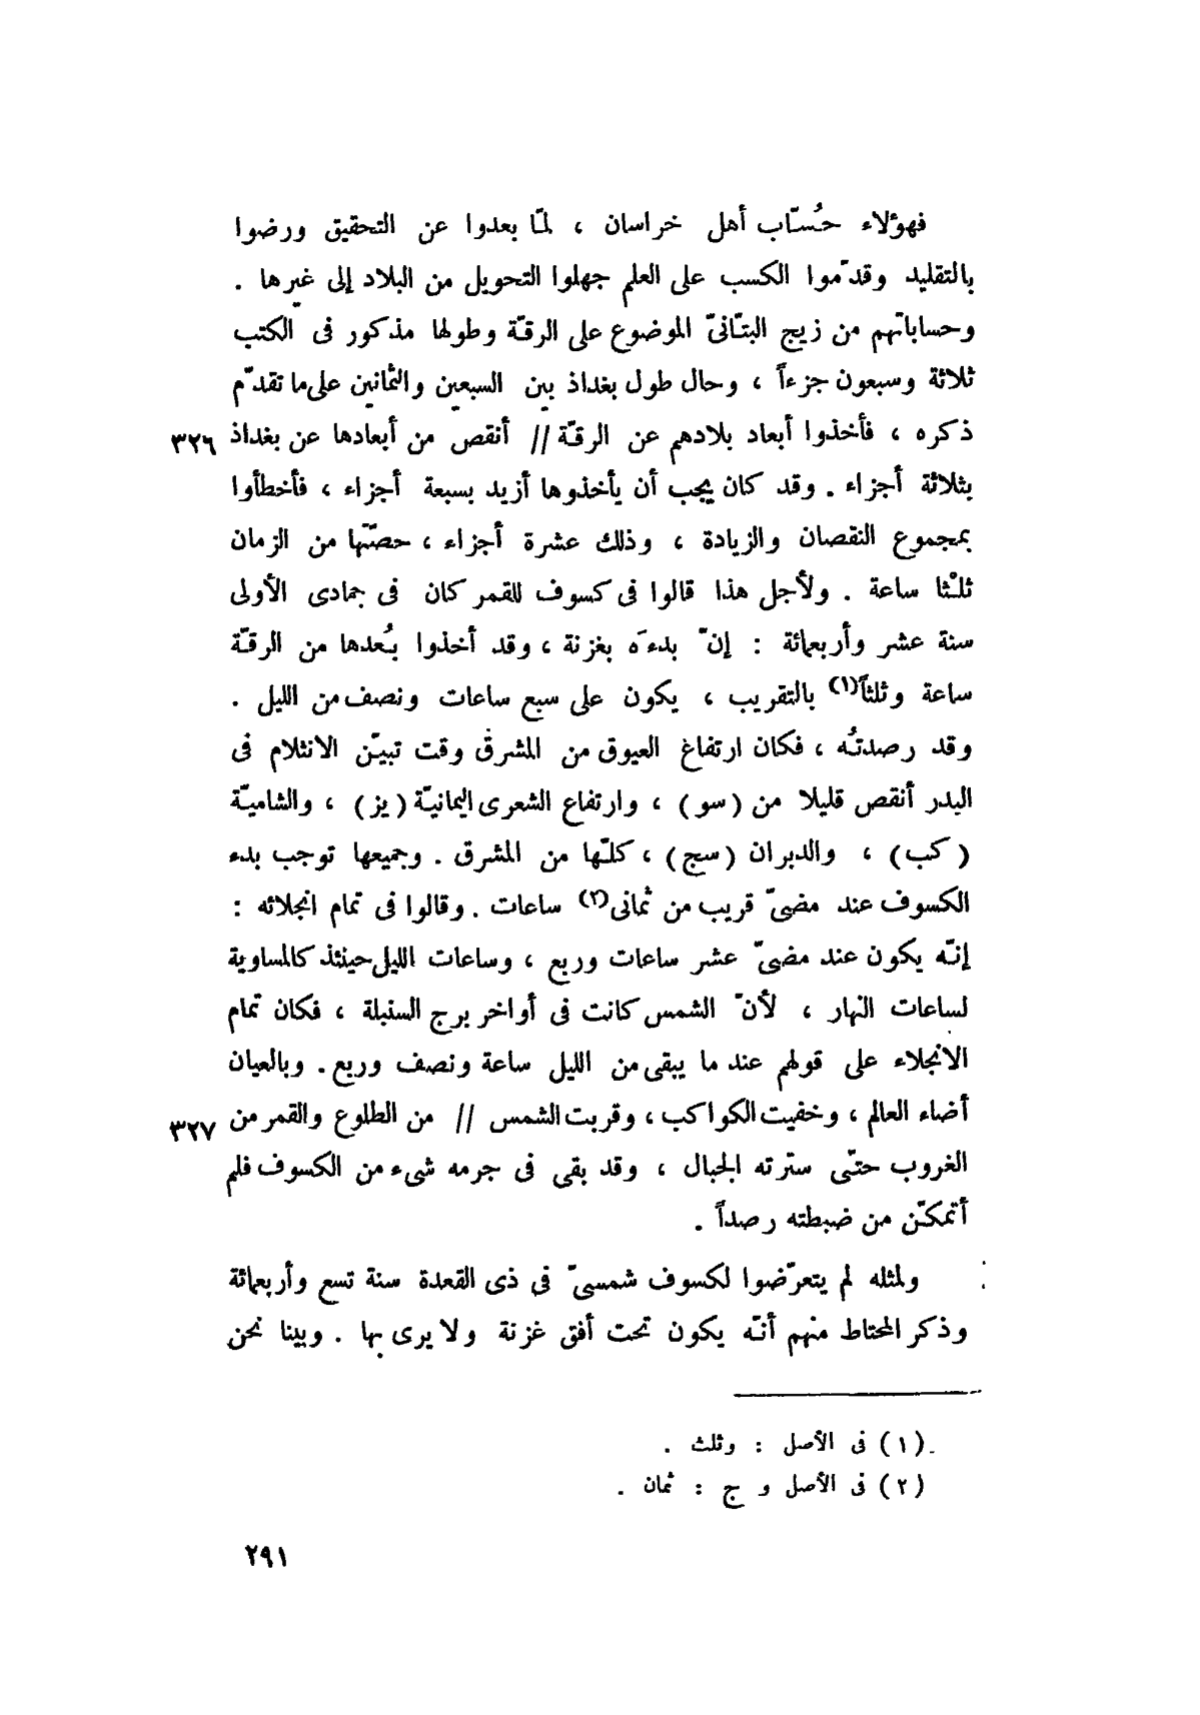 فهؤلاء حُسّاب أهل خراسان ، لمّا بعدوا عن التحقيق ورضوا
بالتقليد وقدّموا الكسب على العلم جهلوا التحويل من البلاد إلى غيرها .
وحساباتهم من زيج البتّانىّ الموضوع على الرقّة وطولها مذكور فى الكتب
ثلاثة وسبعون جزءاً ، وحال طول بغداذ بين السبعين والثمانين على ما تقدّم
ذكره ، فأخذوا أبعاد بلادهم عن الرقّة // أنقص من أبعادها عن بغداذ ٣٢٦
بثلاثة أجزاء . وقد كان يجب أن يأخذوها أزيد بسبعة أجزاء ، فأخطأوا
بمجموع النقصان والزيادة ، وذلك عشرة أجزاء ، حصّتها من الزمان
ثلثا ساعة . ولأجل هذا قالوا فى كسوف للقمر كان فى جمادى الأولى
سنة عشر وأربعمائة : إنّ بدءَه بغزنة ، وقد أخذوا بُعدها من الرقّة
ساعة وثلثاً(١) بالتقريب ، يكون على سبع ساعات ونصف من الليل .
وقد رصدتُه ، فكان ارتفاع العيوق من المشرق وقت تبيّن الانثلام فى
البدر أنقص قليلا من ( سو ) ، وارتفاع الشعرى اليمانيّة ( يز ) ، والشاميّة
( كب ) ، والدبران ( سج ) ، كلّها من المشرق . وجميعها توجب بدء
الكسوف عند مضىّ قريب من ثمانى(٢) ساعات . وقالوا فى تمام انجلائه :
إنّه يكون عند مضىّ عشر ساعات وربع ، وساعات الليل حينئذ كالمساوية
لساعات النهار ، لأنّ الشمس كانت فى أواخر برج السنبلة ، فكان تمام
الانجلاء على قولهم عند ما يبقى من الليل ساعة ونصف وربع . وبالعيان
أضاء العالم ، وخفيت الكواكب ، وقربت الشمس // من الطلوع والقمر من ٣٢٧
الغروب حتّى سترته الجبال ، وقد بقى فى جرمه شىء من الكسوف فلم
أتمكّن من ضبطته رصداً .
ولمثله لم يتعرّضوا لكسوف شمسىّ فى ذى القعدة سنة تسع وأربعمائة
وذكر المحتاط منهم أنّه يكون تحت أفق غزنة ولا يرى بها . وبينا نحن
(١) فى الأصل : وثلث .
(٢) فى الأصل و ج : ثمان .
٢٩١